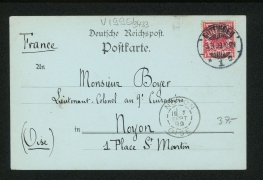 Deutsche Reichspost.
Postkarte.
France
An
Monsieur Boyer
Lieutenant-Colonel au 9e Cuirassiers
in Noyon
(Oise)
1 Place St Martin
38-